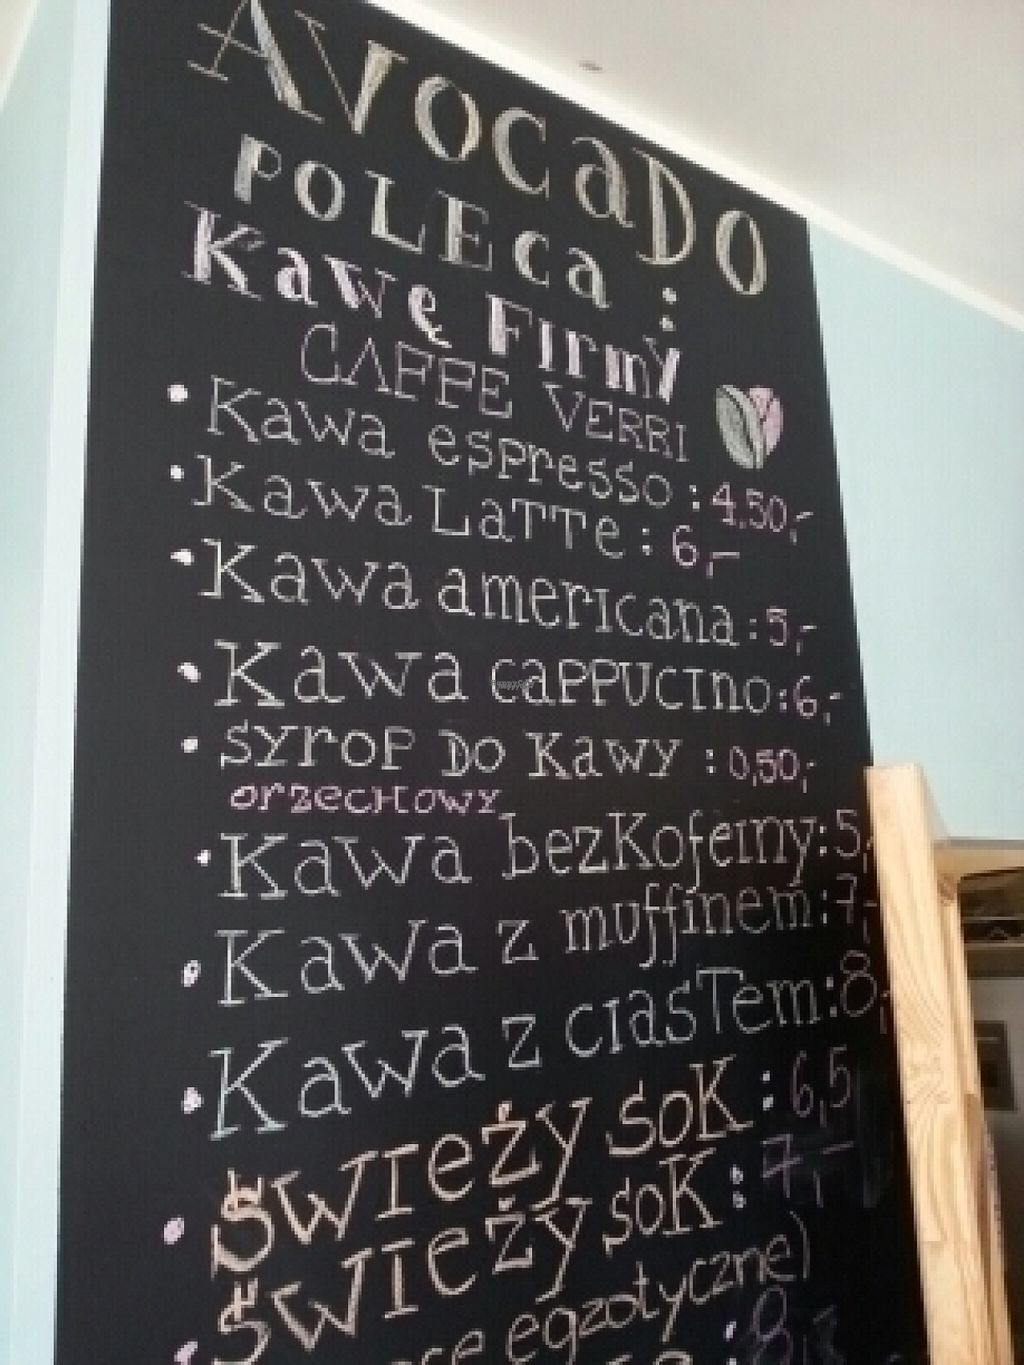 AVOCADO
POLECA:
Kawę Firmy
CAFFE VERRI
• Kawa espresso: 4,50,-
• Kawa Latte: 6,-
• Kawa americana: 5,-
• Kawa cappucino: 6,-
• syrop do kawy: 0,50,-
orzechowy
• Kawa bezkofeiny: 5,-
• Kawa z muffinem: 7,-
• Kawa z ciastem: 8,-
• świeży sok: 6,5
• świeży sok: 7,-
egzotyczne)